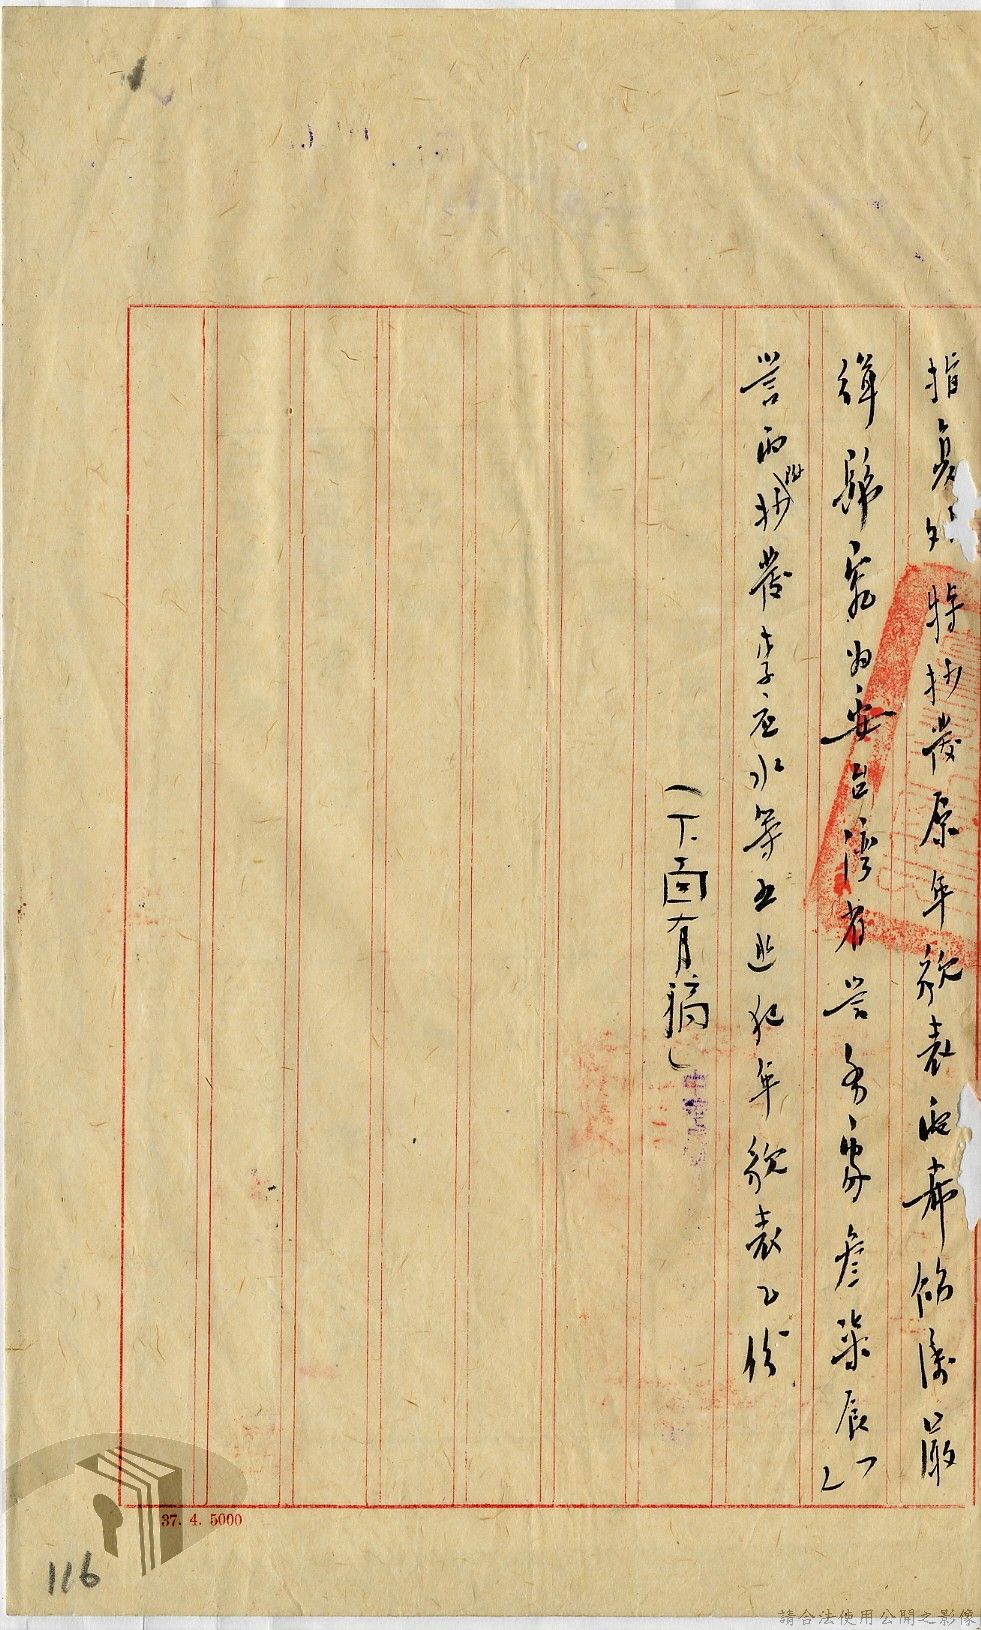 指复外特抄發原年貌表而希飭屬嚴
緝歸案為要台灣省警務處詹柒辰
警丙附抄發李应水等五逃犯年貌表乙份
(下面有稿)
37. 4. 5000
116
請合法使用公開之影像